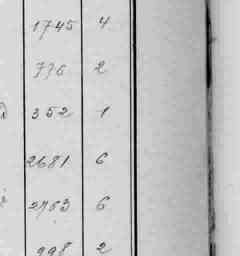 1745 4
776 2
352 1
2681 6
2763 6
998 2